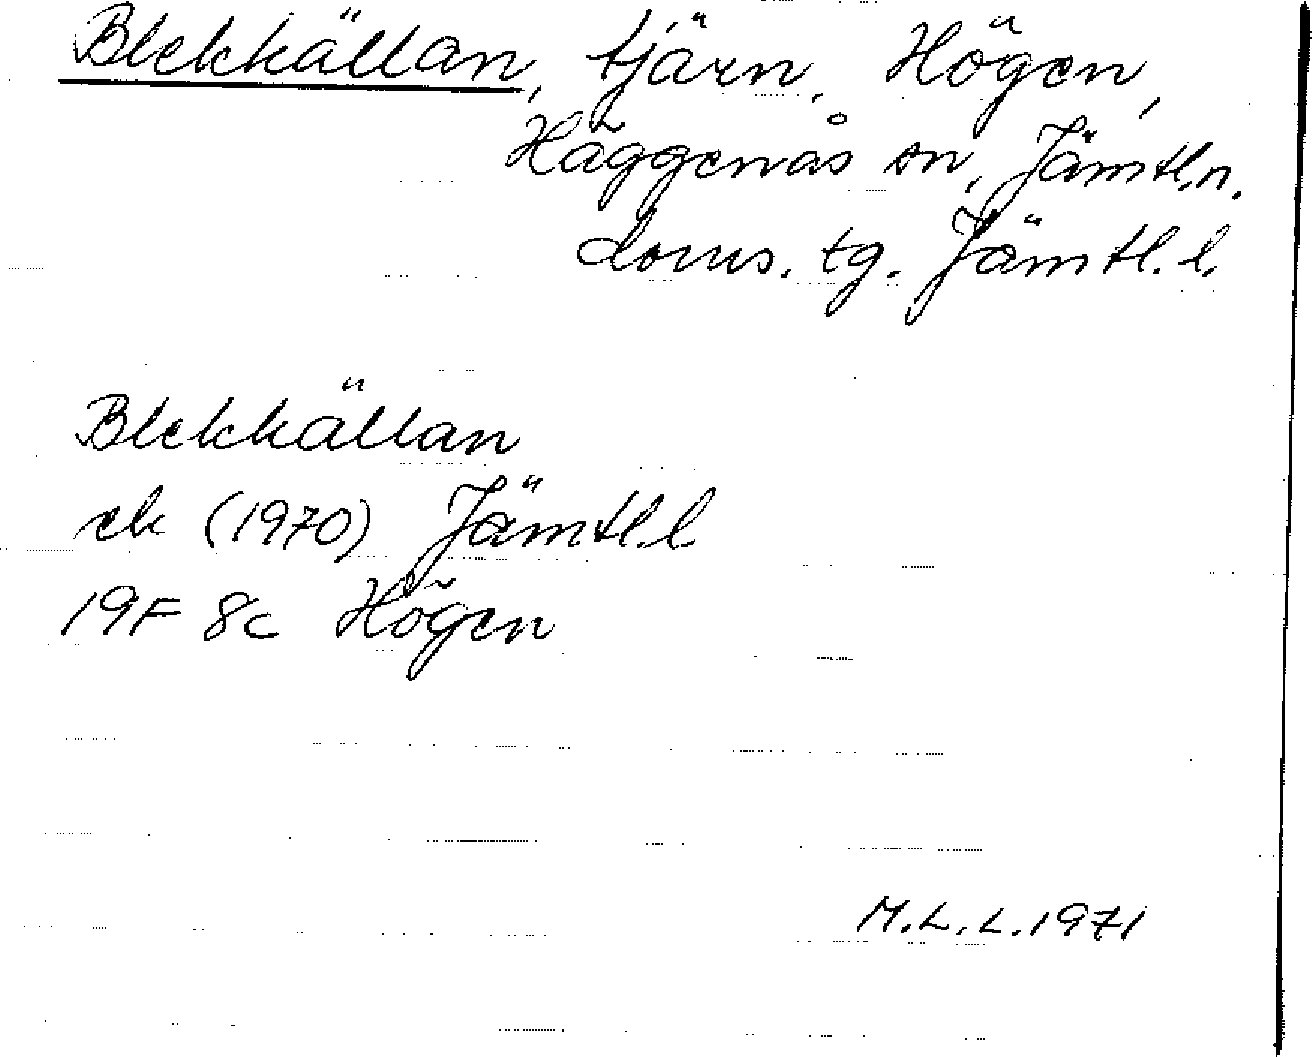 Blekkällan, tjärn. Högen,
Häggenås sn, Jämtl.n.
doms. tg. Jämtl. l.
Blekkällan
ek (1970) Jämtl.l.
19F 8c Högen
M.L.L. 1971